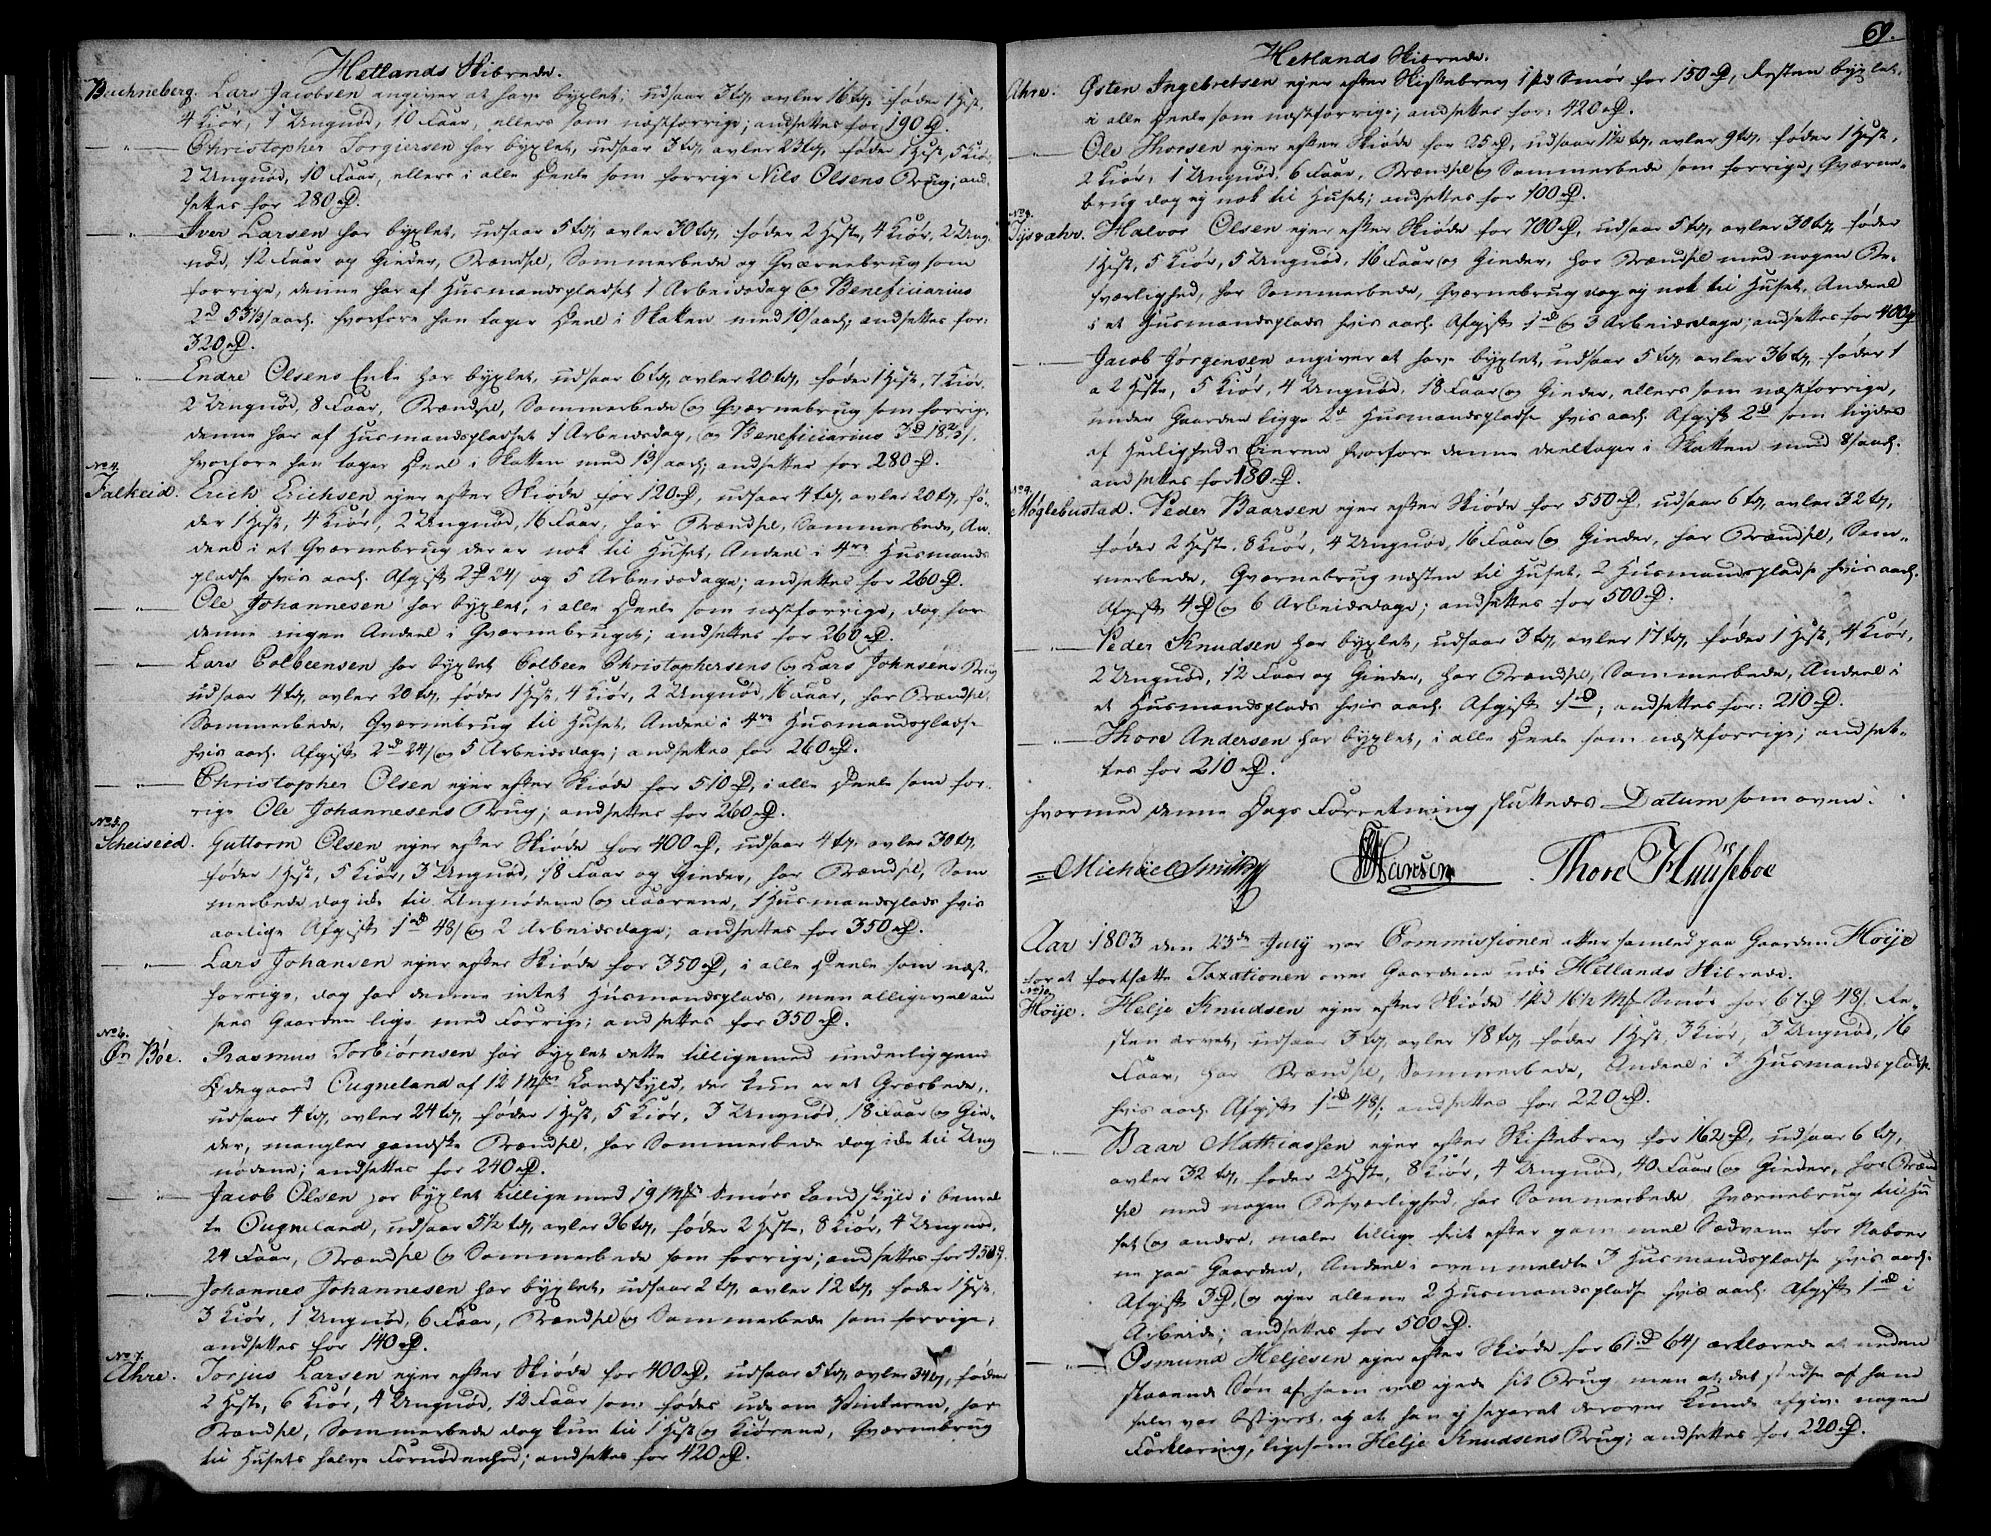 Hetlands Skibrede.
Buchneberg. Lars Jacobsen angiver at have byxlet, udsaar 3 td, avler 16 td, føder 1 Hest,
4 Kiør, 1 Ungnød, 10 Faar, ellers som næstforrige; andsettes for 190 rd.
Christopher Torgiersen har byxlet, udsaar 3 td, avler 23 td, føder 1 Hest, 5 Kiør,
2 Ungnød, 10 Faar, ellers i alle Deele som forrige Nils Olsens Brug; and-
settes for 280 rd.
Iver Larsen har byxlet, udsaar 5 td, avler 30 td, føder 2 Heste, 4 Kiør, 2 Ung-
nød, 12 Faar og Gieder, Brændsel, Sommerbede og Qværnebrug som
forrige, denne har af Husmandspladset 1 Arbeidsdag og Beneficiarius
2 d 53 1/3 s aarl. hvorfore han tager Deel i Skatten med 10 s aarl; andsettes for:
320 rd.
Endre Olsens Enke har byxlet, udsaar 6 td, avler 20 td, føder 1 Hest, 7 Kiør,
2 Ungnød, 8 Faar, Brændsel, Sommerbede og Qværnebrug som forrige,
denne har af Husmandspladset 1 Arbeidsdag, og Beneficiarius 3 d 18 2/3 s.
hvorfore han tager Deel i Skatten med 13 s aarl; andsettes for 280 rd.
No 4.
Falkeid. Erich Erichsen ejer efter Skiøde for 120 rd, udsaar 4 td, avler 20 td, fø-
der 1 Hest, 4 Kiør, 2 Ungnød, 16 Faar, har Brændsel, Sommerbede, An-
deel i et Qværnebrug der er nok til Huset, Andeel i 4re Husmands
pladse hvis aarl. Afgift 2 rd 24 s og 5 Arbeidsdage; andsettes for 260 rd.
Ole Johannesen har byxlet, i alle Deele som næstforrige, dog har
denne ingen Andeel i Qværnebruget; andsettes for 260 rd.
Lars Colbeensen har byxlet Colbeen Christophersens og Lars Johnsens Brug
udsaar 4 td, avler 20 td, føder 1 Hest, 4 Kiør, 2 Ungnød, 16 Faar, har Brændsel,
Sommerbede, Qværnebrug til Huset, Andeel i 4re Husmandspladse
hvis aarl. Afgift 2 d 24 s og 5 Arbeidsdage; andsettes for 260 rd.
Christopher Olsen ejer efter Skiøde for 510 rd, i alle Deele som for-
rige Ole Johannesens Brug; andsettes for 260 rd.
No 5.
Scheiseid. Guttorm Olsen ejer efter Skiøde for 400 rd, udsaar 4 td, avler 30 td,
føder 1 Hest, 5 Kiør, 3 Ungnød, 18 Faar og Gieder, har Brændsel, Som
merbede dog ikke til Ungnødene og Faarene, 1 Husmandsplads hvis
aarlige Afgift 1 rd 48 s og 2 Arbeidsdage; andsettes for 350 rd.
Lars Johansen ejer efter Skiøde for 350 rd, i alle Deele som næst-
forrige, dog har denne intet Husmandsplads, men alligevel an
sees Gaarden lige med Forrige; andsettes for 350 rd.
No 6.
Øv Bøe. Rasmus Torbiørnsen har byxlet dette tilligemed underliggende
Ødegaard Ougneland af 12 Mk Landskyld, der kun er et Græsbede,
udsaar 4 td, avler 24 td, føder 1 Hest, 5 Kiør, 3 Ungnød, 18 Faar og Gie-
der, mangler gandske Brændsel, har Sommerbede dog ikke til Ung
nødene; andsettes for 240 rd.
Jacob Olsen har byxlet tilligemed 19 Mk Smørs Landskyld i bemel
te Ougneland, udsaar 5 1/2 td, avler 36 td, føder 2 Heste, 8 Kiør, 4 Ungnød,
24 Faar, Brændsel og Sommerbede som forrige; andsettes for 450 rd.
Johannes Johannesen har byxlet, udsaar 2 td, avler 12 td, føder 1 Hest,
3 Kiør, 1 Ungnød, 6 Faar, Brændsel og Sommerbede som forrige,
andsettes for 140 rd.
No 7.
Ahre. Torjus Larsen ejer efter Skiøde for 400 rd, udsaar 5 td, avler 34 td, føder
2 Heste, 6 Kiør, 4 Ungnød, 12 Faar som fødes ude om Vinteren, har
Brændsel, Sommerbede dog kun til 1 Hest og Kiørene, Qværnebrug
til Husets halve Fornødenhed; andsettes for 420 rd.
69.
Hetlands Skibrede.
Ahre. Østen Ingebretsen ejer efter Skiftebrev 1 pd Smør for 150 rd, Resten byxlet,
i alle Deele som næstforrige; andsettes for: 420 rd.
Ole Thorsen ejer efter Skiøde for 25 rd, udsaar 1 1/2 td, avler 9 td, føder 1 Hest,
2 Kiør, 1 Ungnød, 6 Faar, Brændsel og Sommerbede som forrige, Qværne-
brug dog ej nok til Huset; andsettes for 100 rd.
No 8.
Tysvahr. Halvor Olsen ejer efter Skiøde for 700 rd, udsaar 5 td, avler 30 td, føder
1 Hest, 5 Kiør, 5 Ungnød, 16 Faar og Gieder, har Brændsel med nogen Be-
sværlighed, har Sommerbede, Qværnebrug dog ej nok til Huset, Andeel
i et Husmandsplads hvis aarl. Afgift 1 rd og 3 Arbeidsdage; andsettes for 400 rd
Jacob Jørgensen angiver at have byxlet, udsaar 5 td, avler 36 td, føder 1
a 2 Heste, 5 Kiør, 4 Ungnød, 18 Faar og Gieder, ellers som næstforrige,
under Gaarden ligge 2de Husmandspladse hvis aarl. Afgift 2 rd som nydes
af Herligheds Eieren hvorfore denne deeltager i Skatten med 8 s aarl.
andsettes for 180 rd.
No 9.
Møglebustad. Peder Baarsen ejer efter Skiøde for 550 rd, udsaar 6 td, avler 32 td,
føder 2 Heste, 8 Kiør, 4 Ungnød, 16 Faar og Gieder, har Brændsel, Som-
merbede, Qværnebrug næsten til Huset, 2 Husmandspladse hvis aarl.
Afgift 4 rd og 6 Arbeidsdage; andsettes for 500 rd.
Peder Knudsen har byxlet, udsaar 3 td, avler 17 td, føder 1 Hest, 4 Kiør,
2 Ungnød, 12 Faar og Gieder, har Brændsel, Sommerbede, Andeel i
et Husmandsplads hvis aarl. Afgift 1 rd; andsettes for: 210 rd.
Thore Andersen har byxlet, i alle Deele som næstforrige; andset-
tes for 210 rd.
hvormed denne Dags Forretning sluttedes Datum som oven.
Michael Smith Hansen Thore Huuseboe
Aar 1803 den 23de July var Commissionen atter samlet paa Gaarden Høije
for at fortsætte Taxationen over Gaardene udi Hetlands Skibrede.
No 10.
Høije. Helje Knudsen ejer efter Skiøde 1 pd 16 1/2 Mk Smør for 67 rd 48 s. Re-
sten arvet, udsaar 3 td, avler 18 td, føder 1 Hest, 3 Kiør, 3 Ungnød, 16
Faar, har Brændsel, Sommerbede, Andeel i 3 Husmandspladse
hvis aarl. Afgift 1 rd 48 s; andsettes for 220 rd.
Baar Mathiassen ejer efter Skiftebrev for 162 rd, udsaar 6 td,
avler 32 td, føder 2 Heste, 8 Kiør, 4 Ungnød, 40 Faar og Gieder, har Brænd
sel med nogen Besværlighed, har Sommerbede, Qværnebrug til Hu
set og andre, maler tillige frit efter gammel Sædvane for Naboer
ne paa Gaarden, Andeel i ovenmeldte 3 Husmandspladse hvis aarl.
Afgift 3 rd, og ejer allene 2 Husmandspladse hvis aarl. Afgift 1 rd i
Arbeide; andsettes for 500 rd.
Osmund Heljesen ejer efter Skiøde for 61 rd 64 s erklærede at neden
staaende Søn af ham vel ejede sit Brug men at det stedse af ham
selv var bestyret, og at han ej separat derover kunde afgive nogen
Forklaring, ligesom Helje Knudsens Brug; andsettes for 220 rd.